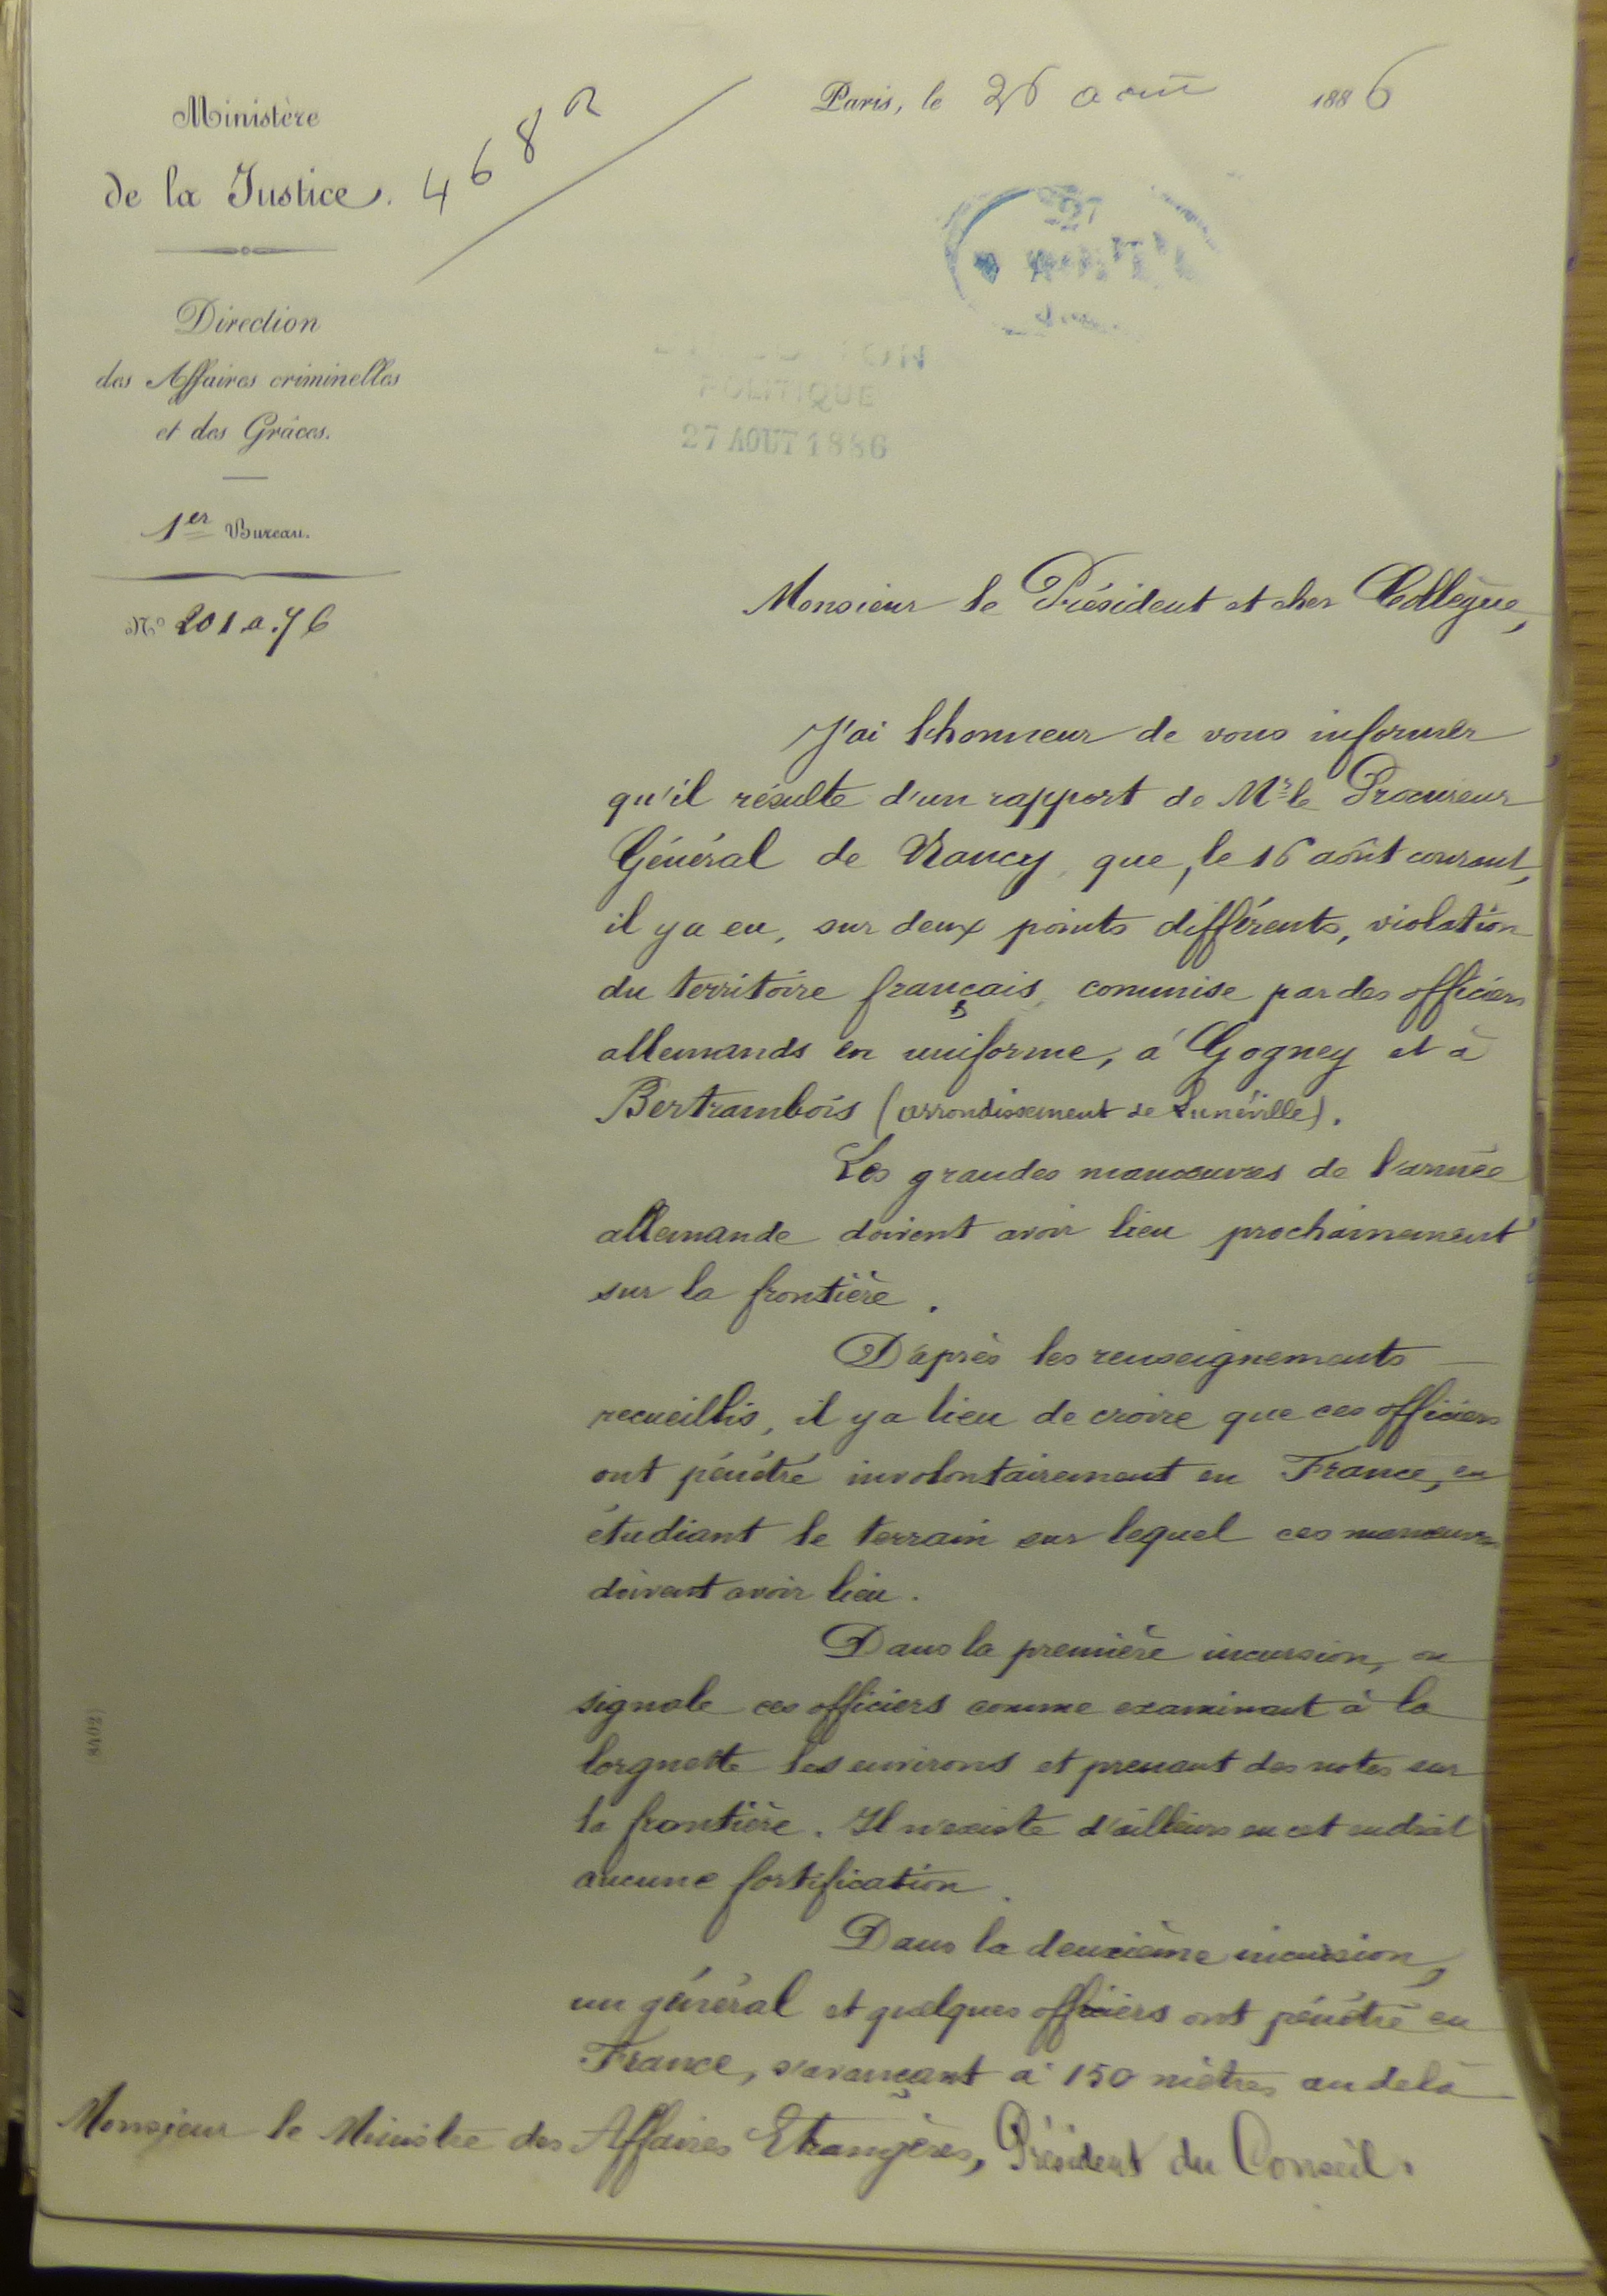 Ministère
de la Justice.
4682
Direction
des Affaires criminelles
et des Grâces.
1er Bureau.
No 201.a.76
Paris, le 26 août 1886
27
POLITIQUE
27 AOUT 1886
Monsieur le Président et cher Collègue,
J'ai l'honneur de vous informer
qu'il résulte d'un rapport de Mr le Procureur
Général de Nancy, que, le 16 août courant,
il y a eu, sur deux points différents, violation
du territoire français, commise par des officiers
allemands en uniforme, à Gogney et à
Bertrambois (arrondissement de Lunéville).
Les grandes manœuvres de l'armée
allemande doivent avoir lieu prochainement
sur la frontière.
D'après les renseignements
recueillis, il y a lieu de croire que ces officiers
ont pénétré involontairement en France, en
étudiant le terrain sur lequel ces manœuvres
doivent avoir lieu.
Dans la première incursion, on
signale ces officiers comme examinant à la
lorgnette les environs et prenant des notes sur
la frontière. Il n'existe d'ailleurs en cet endroit
aucune fortification.
Dans la deuxième incursion,
un général et quelques officiers ont pénétré en
France, s'avançant à 150 mètres au delà
Monsieur le Ministre des Affaires Etrangères, Président du Conseil.